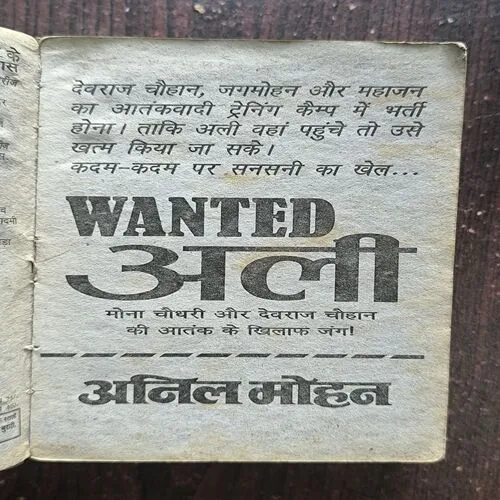 देवराज चौहान, जगमोहन और महाजन
का आतंकवादी ट्रेनिंग कैम्प में भर्ती
होना। ताकि अली वहां पहुंचे तो उसे
खत्म किया जा सके।
कदम-कदम पर सनसनी का खेल...
WANTED
अली
मोना चौधरी और देवराज चौहान
की आतंक के खिलाफ जंग!
अनिल मोहन